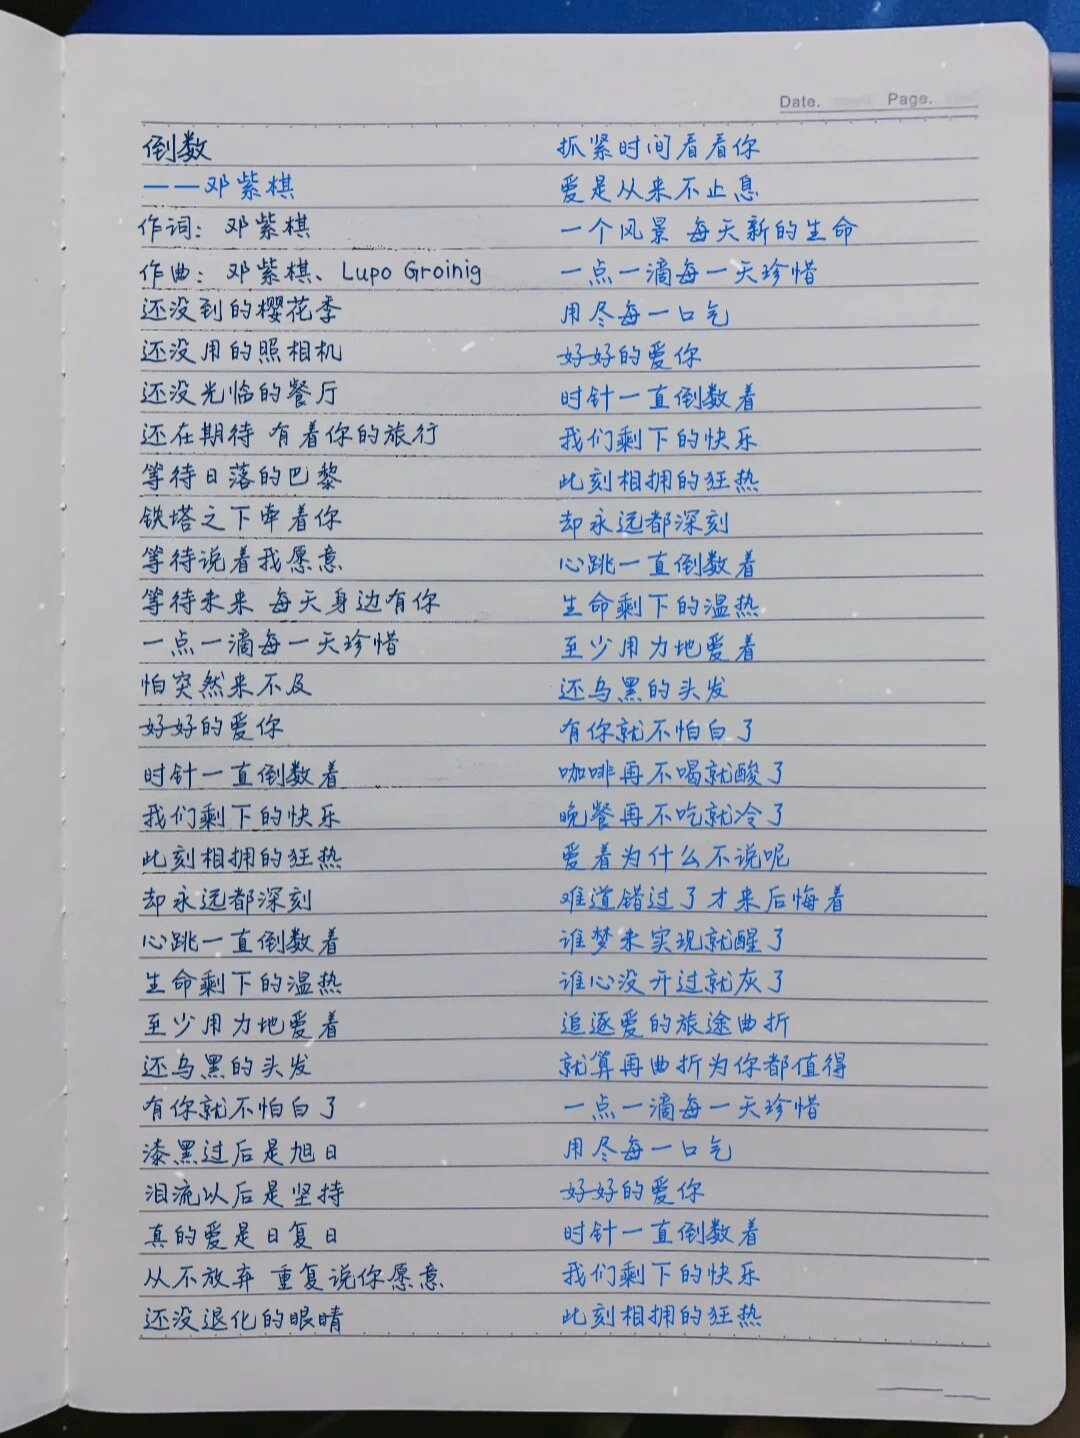 Date. Page.
倒数
——邓紫棋
作词：邓紫棋
作曲：邓紫棋、Lupo Groinig
还没到的樱花季
还没用的照相机
还没光临的餐厅
还在期待 有着你的旅行
等待日落的巴黎
铁塔之下牵着你
等待说着我愿意
等待未来 每天身边有你
一点一滴每一天珍惜
怕突然来不及
好好的爱你
时针一直倒数着
我们剩下的快乐
此刻相拥的狂热
却永远都深刻
心跳一直倒数着
生命剩下的温热
至少用力地爱着
还乌黑的头发
有你就不怕白了
漆黑过后是旭日
泪流以后是坚持
真的爱是日复日
从不放弃 重复说你愿意
还没退化的眼睛
抓紧时间看看你
爱是从来不止息
一个风景 每天新的生命
一点一滴每一天珍惜
用尽每一口气
好好的爱你
时针一直倒数着
我们剩下的快乐
此刻相拥的狂热
却永远都深刻
心跳一直倒数着
生命剩下的温热
至少用力地爱着
还乌黑的头发
有你就不怕白了
咖啡再不喝就酸了
晚餐再不吃就冷了
爱着为什么不说呢
难道错过了才来后悔着
谁梦未实现就醒了
谁心没开过就灰了
追逐爱的旅途曲折
就算再曲折为你都值得
一点一滴每一天珍惜
用尽每一口气
好好的爱你
时针一直倒数着
我们剩下的快乐
此刻相拥的狂热